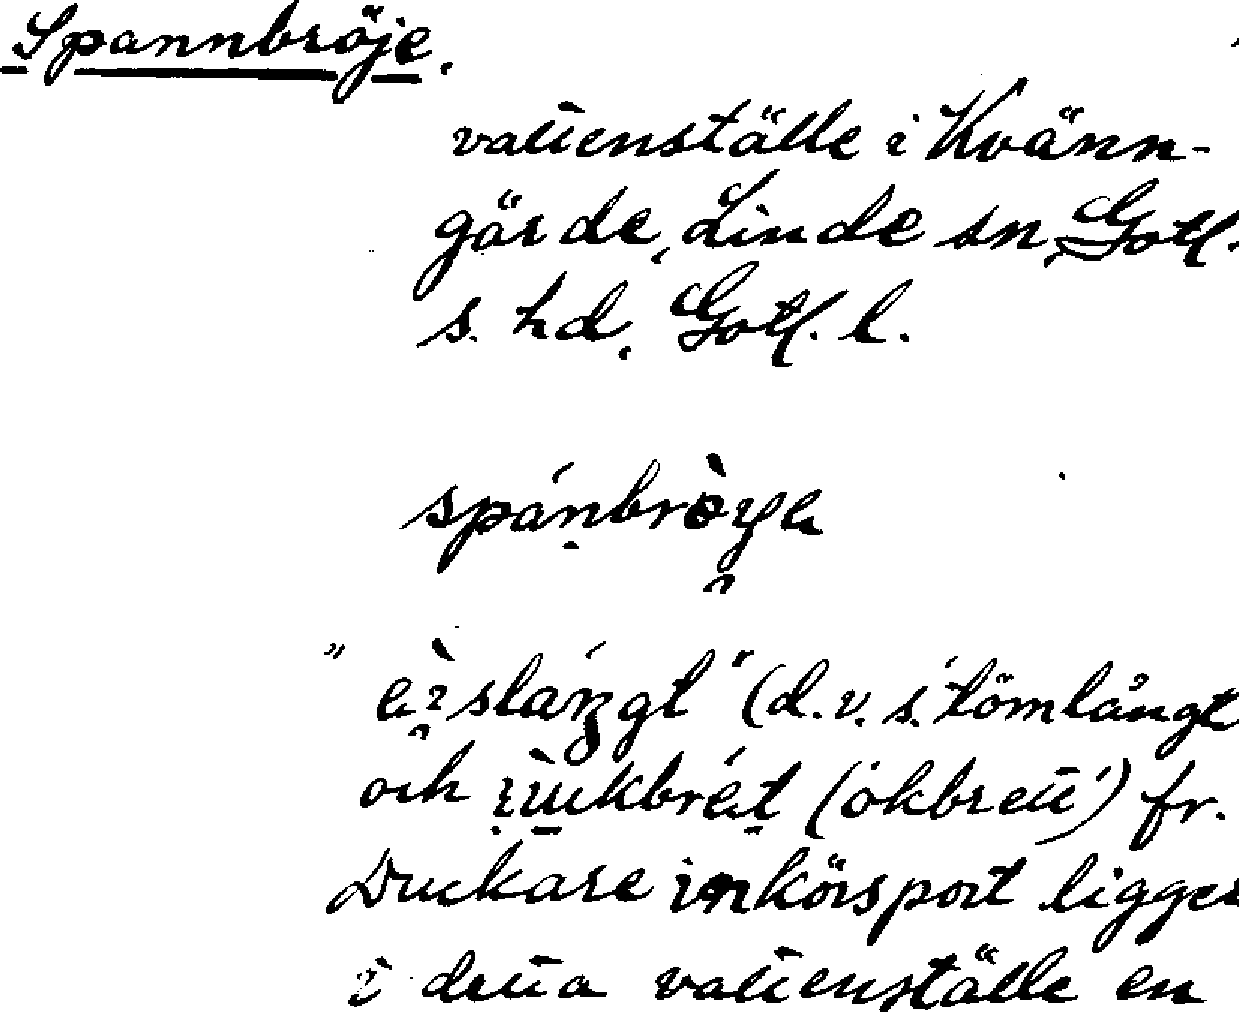 Spannbröje.
vattenställe i Kvänn-
gärde, Linde sn, Gotl.
s. hd, Gotl. l.
spánbròyᶏ
" (d.v.s. 'tömlångt
och (ökbrett') fr.
Duckare inkörsport ligger
i detta vattenställe en